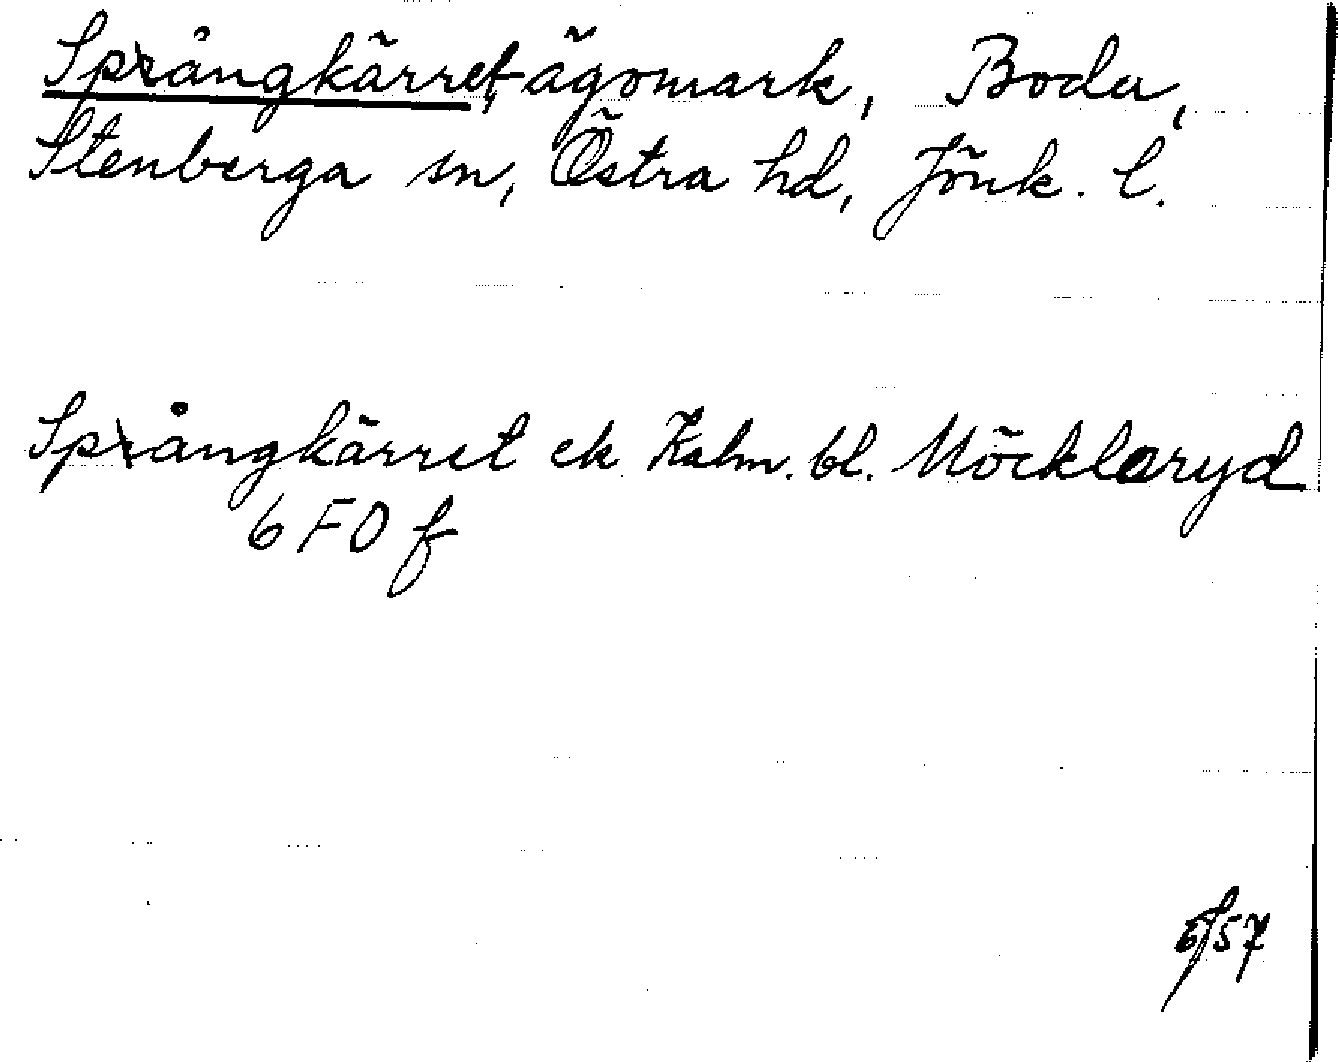 Språngkärret, ägomark, Boda,
Stenberga sn, Östra hd, Jönk. l.
Språngkärret ek Kalm. bl. Möcklaryd
6 F 0 f
6/57